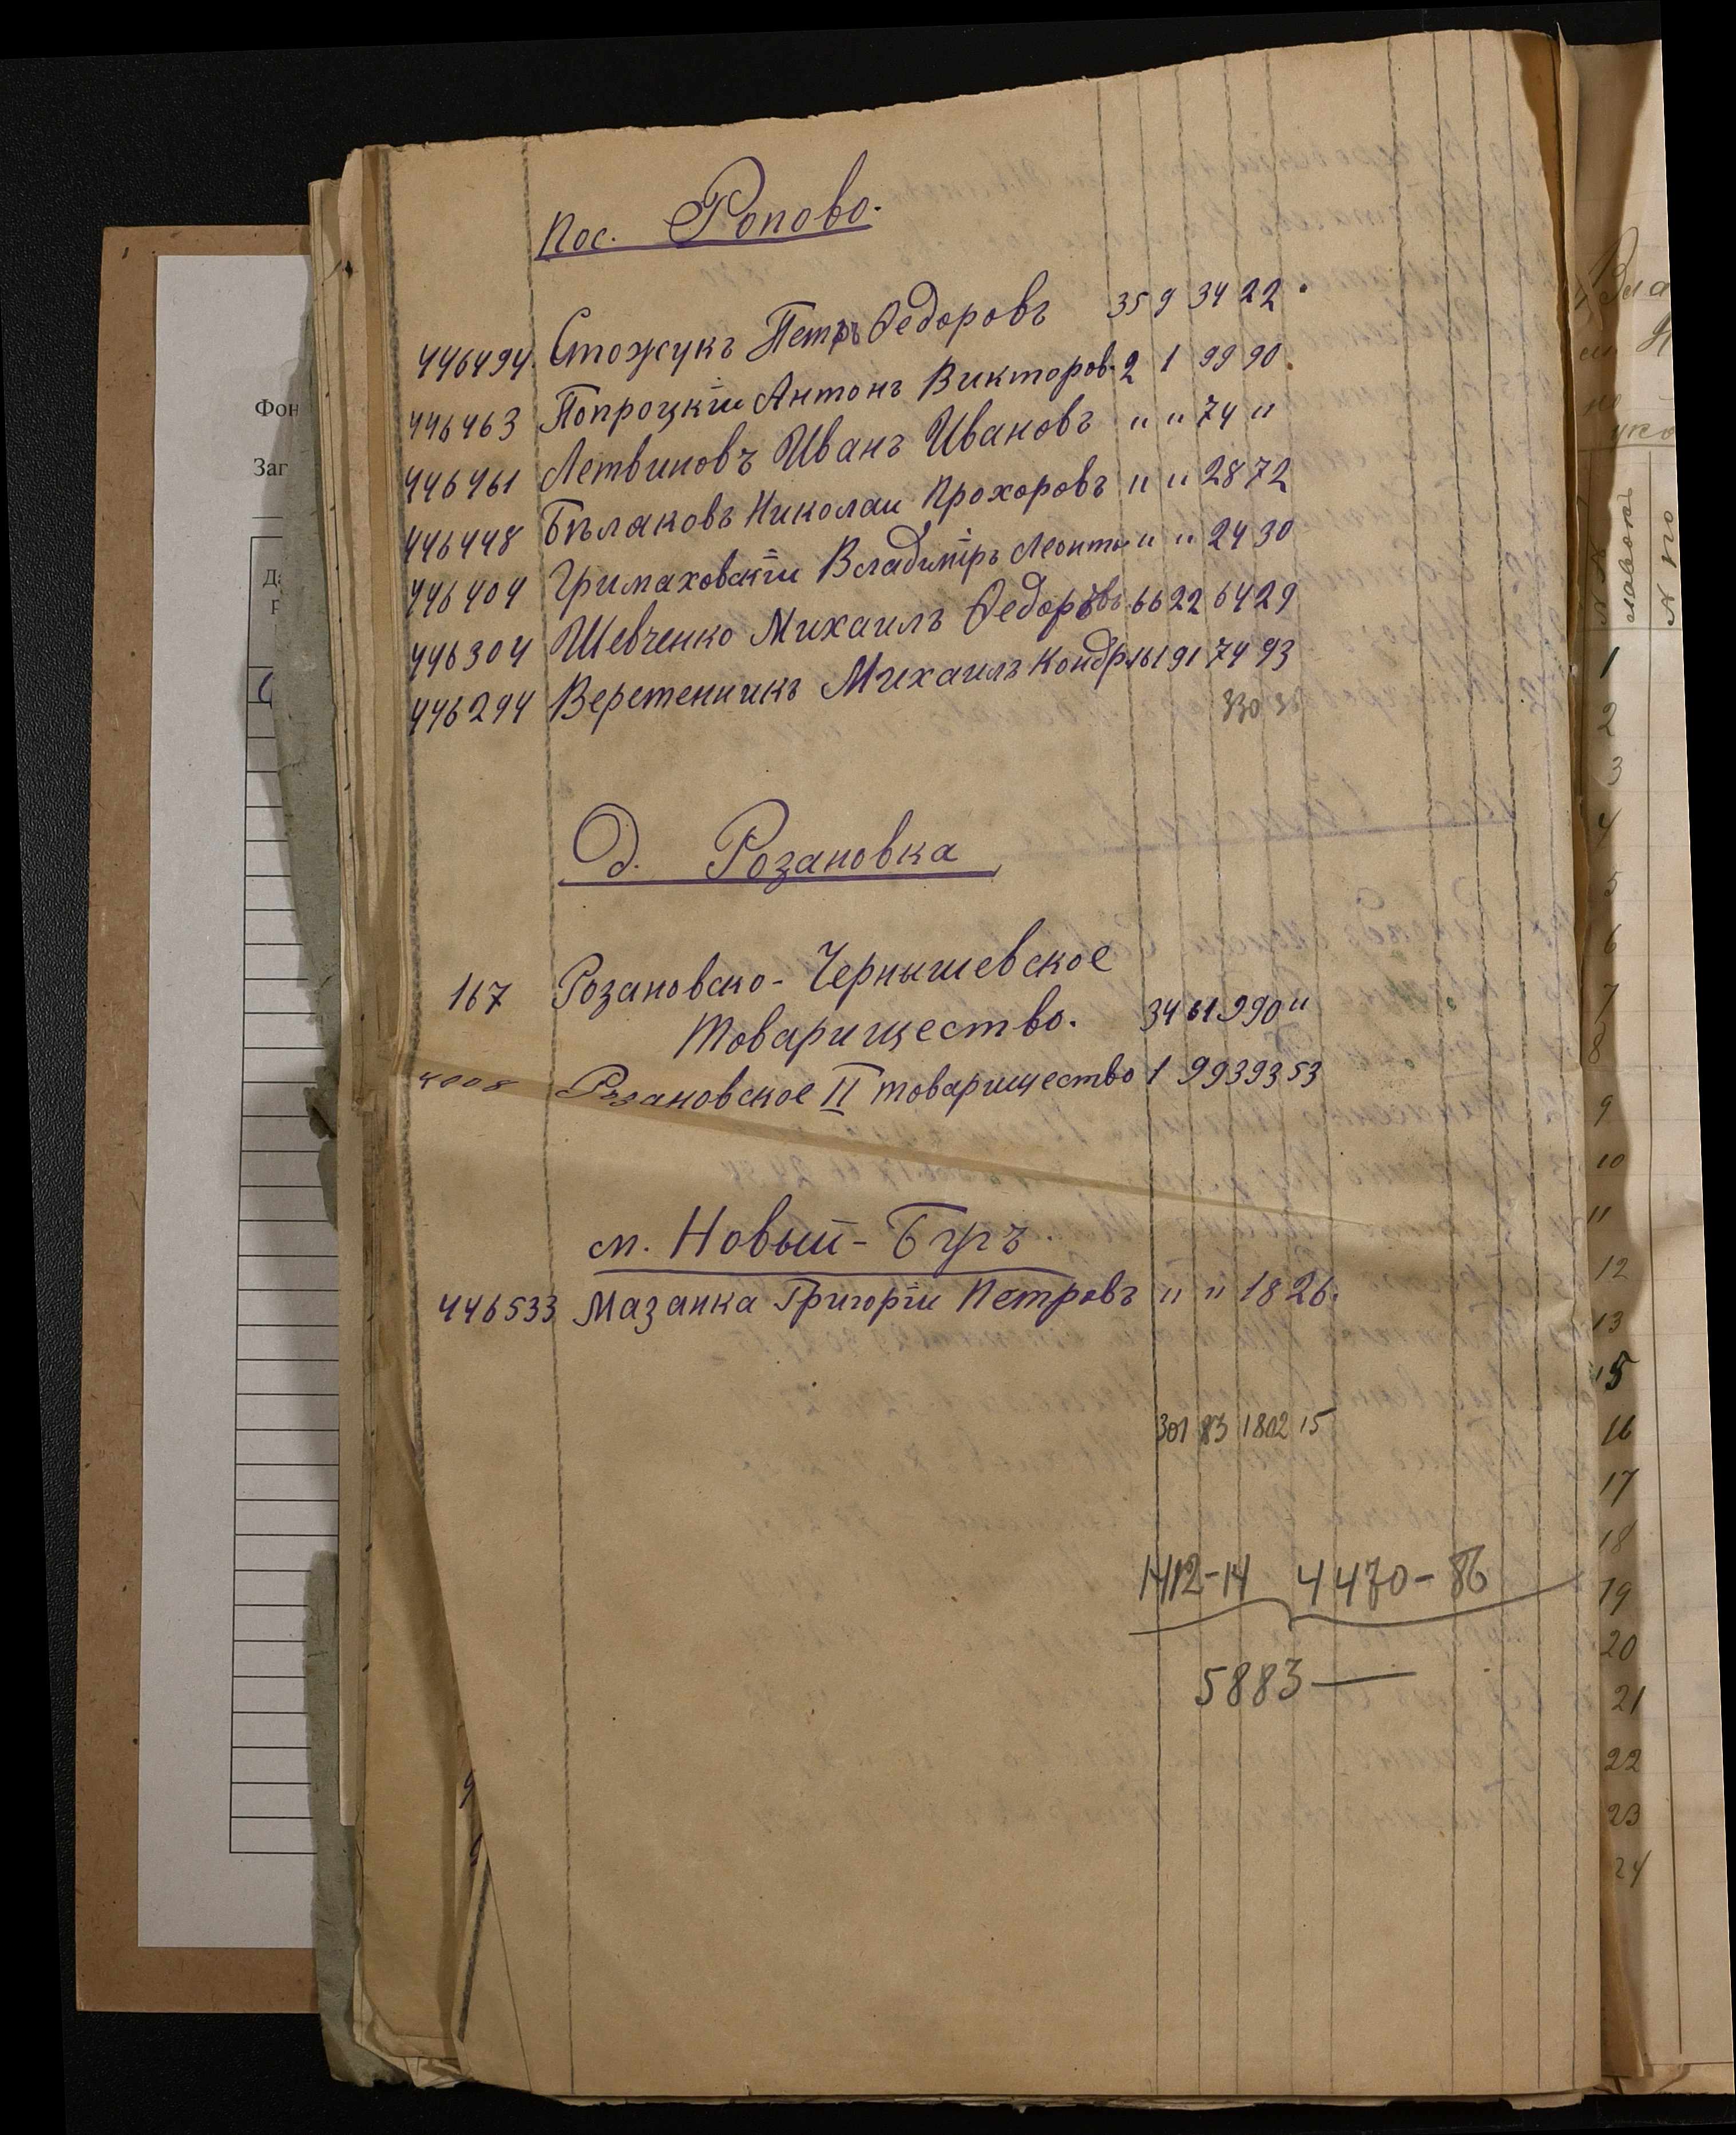 Пос. Попово.
446494. Стожукъ Петръ Федоровъ 35 9 34 22
446463 Попроцкій Антонъ Викторов. 2 1 99 90.
446461 Летвиновъ Иванъ Ивановъ " " 74 "
446448 Бѣлаковъ Николаи Прохоровъ " " 28 72
446404 Гримаховскій Владиміръ Леонть " " 24 30
446304 Шевченко Михаилъ Федоровъ 66 22 64 29
446294 Веретенникъ Михаилъ Кондр 161 91 74 93
330
Д. Розановка
167 Розановско-Чернышевское
Товарищество. 34 61 990 "
4008 Розановское II товарищество 1 99 393 53
м. Новый-Бугъ
446533 Мазанка Григорій Петровъ " " 18 26.
301 83 1802 15
1412-14 4470-86
5883—
Фон
Заг
1
2
3
4
5
6
7
8
9
10
11
12
13
15
16
17
18
19
20
21
22
23
24